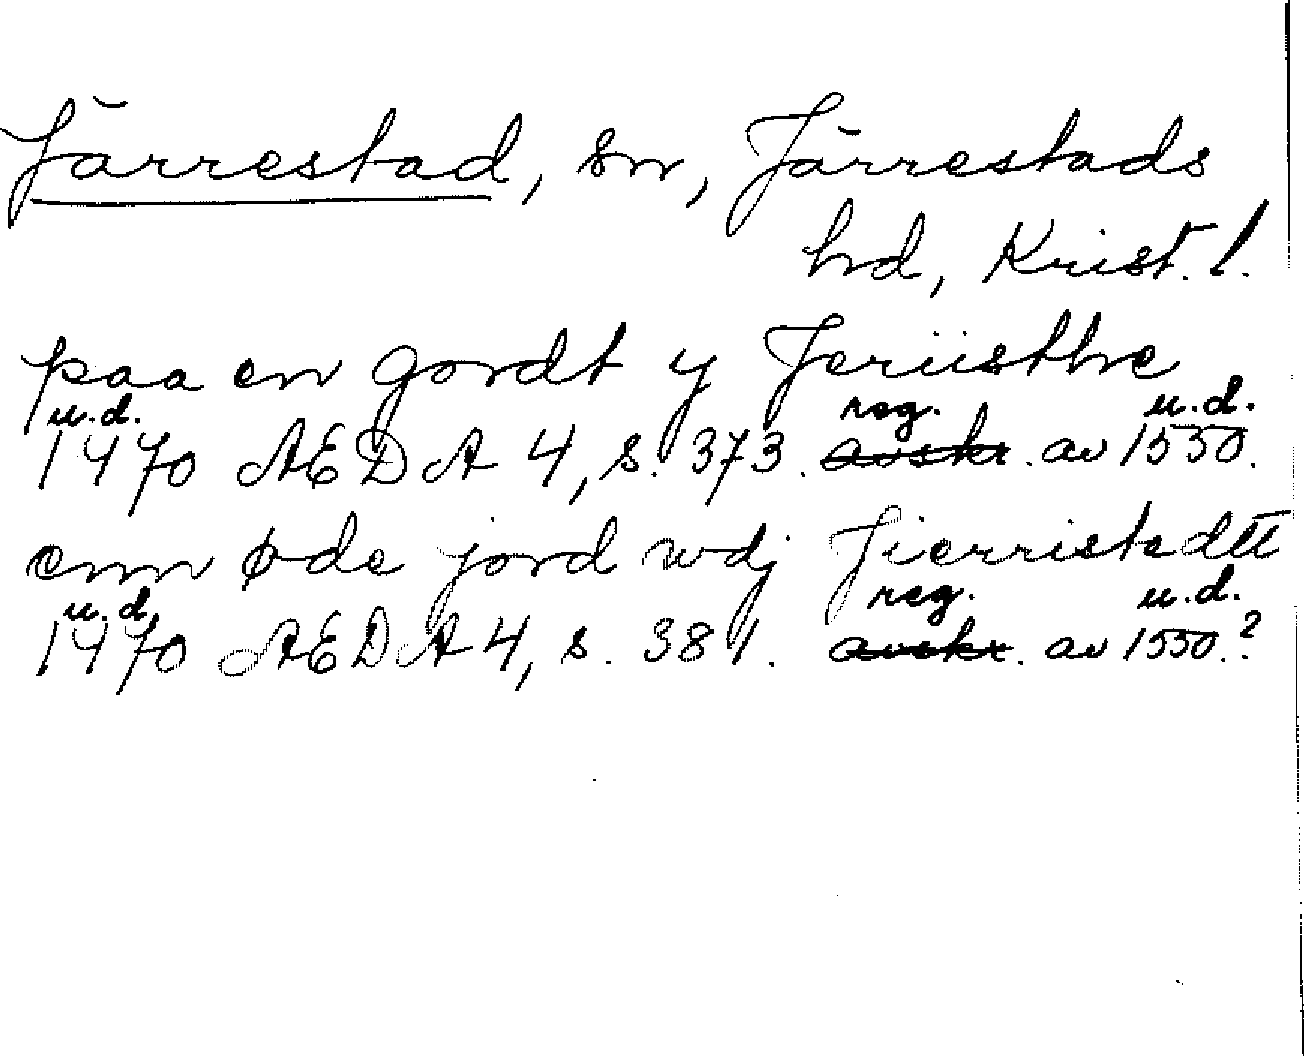 Järrestad, sn, Järrestads
hd, Krist. l.
paa en gordt y Jeriisthe
u.d. reg. u.d.
1470 AEDA 4, s. 373. avskr. av 1550.
enn øde jord wdj Jierristedtt
u.d. reg. u.d.
1470 AEDA 4, s. 381. avskr. av 1550.?